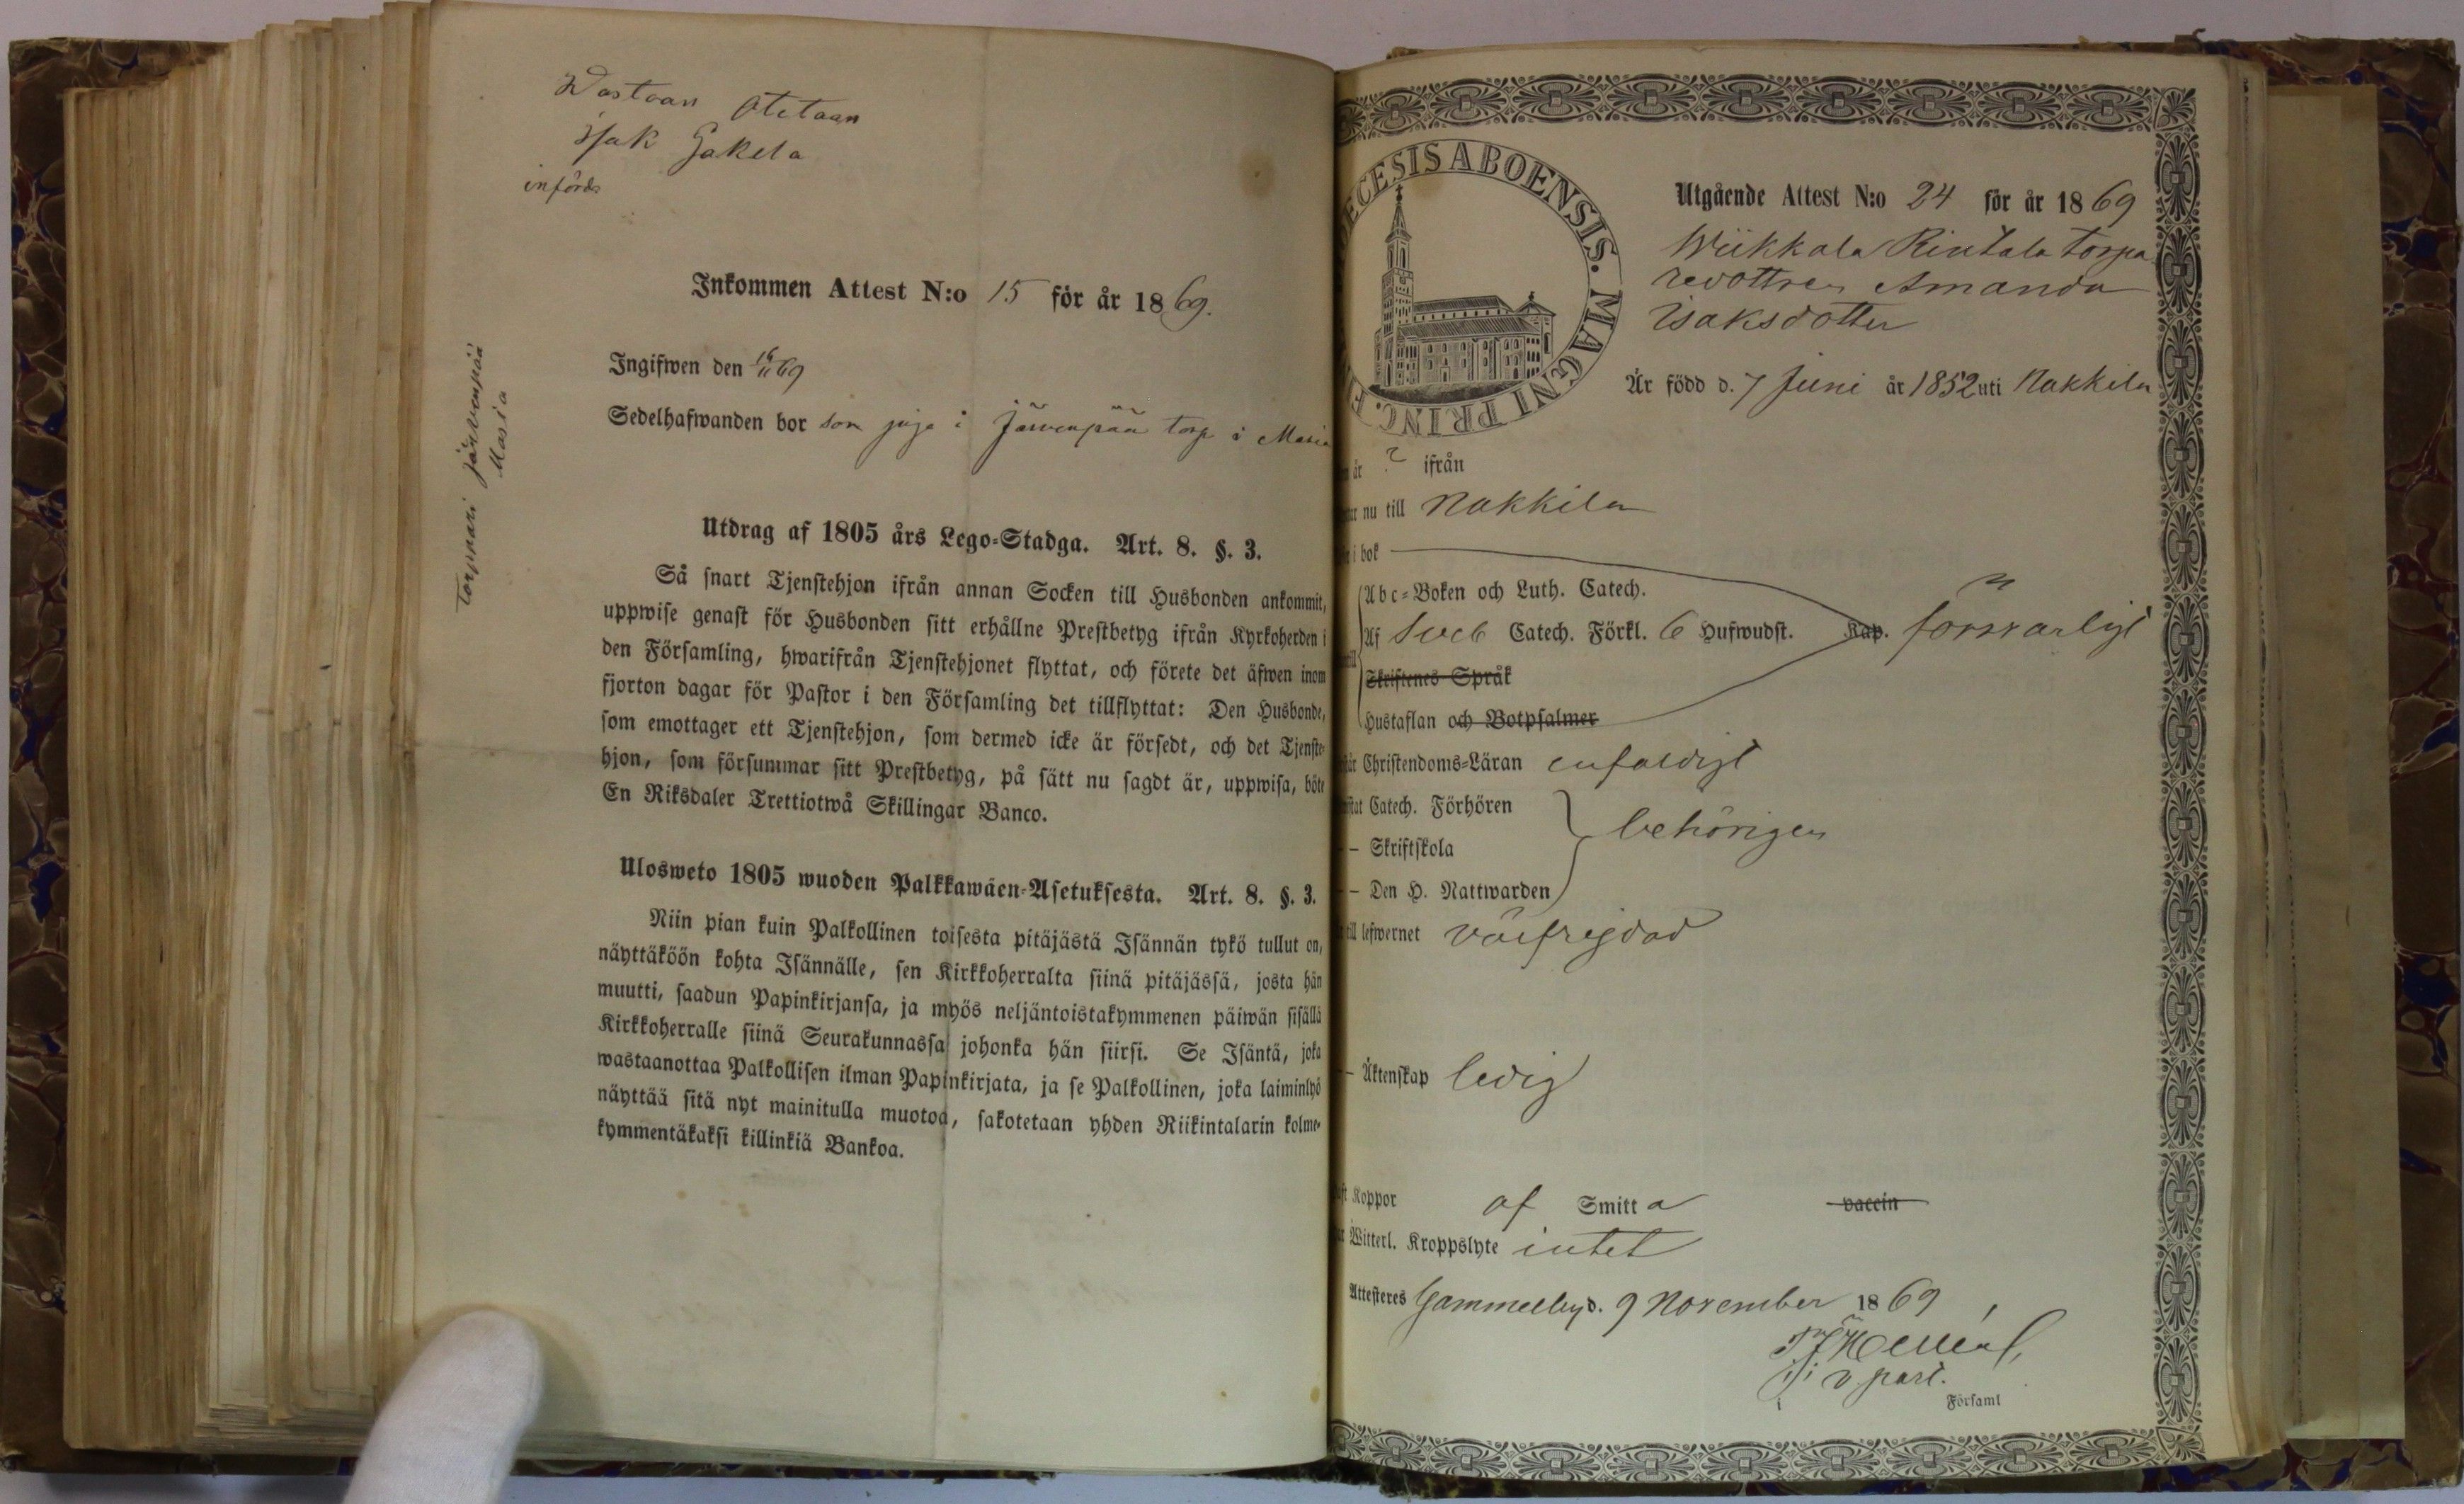 Wastaan Otetaan
Isak Gakela
införds
Inkommen Attest N:o 15 för år 1869.
Ingifwen den 69
Sedelhafwanden bor som piga i Järvenpää torp i Masia
Torppari järvenpää
Masia
Utdrag af 1805 års Lego-Stadga. Art. 8. §. 3.
Så snart Tjenstehjon ifrån annan Socken till Husbonden ankommit,
uppwise genast för Husbonden sitt erhållne Prestbetyg ifrån Kyrkoherden i
den Församling, hwarifrån Tjenstehjonet flyttat, och förete det äfwen inom
fjorton dagar för Pastor i den Församling det tillflyttat: Den Husbonde,
som emottager ett Tjenstehjon, som dermed icke är försedt, och det Tjenste-
hjon, som försummar sitt Prestbetyg, på sätt nu sagdt är, uppwisa, böte
En Riksdaler Trettiotwå Skillingar Banco.
Ulosweto 1805 wuoden Palkkawäen-Asetuksesta. Art. 8. §. 3.
Niin pian kuin Palkollinen toisesta pitäjästä Isännän tykö tullut on,
näyttäköön kohta Isännälle, sen Kirkkoherralta siinä pitäjässä, josta hän
muutti, saadun Papinkirjansa, ja myös neljäntoistakymmenen päiwän sisällä
Kirkkoherralle siinä Seurakunnassa johonka hän siirsi. Se Isäntä, joka
wastaanottaa Palkollisen ilman Papinkirjata, ja se Palkollinen, joka laiminlyö
näyttää sitä nyt mainitulla muotoa, sakotetaan yhden Riikintalarin kolme-
kymmentäkaksi killinkiä Bankoa.
ECESIS ABOENSIS. MAGNI PRINC. F
Utgående Attest N:o 24 för år 1869
Wiikkala Rintala torpa
redottren Amanda
Isaksdotter
Är född d. 7 Juni år 1852 uti Nakkila
år ? ifrån
nu till Nakkila
i bok
Abc-Boken och Luth. Catech.
Af Sveb Catech. Förkl. 6 Hufwudst. Kap. försvarligt
Skriftenes Språk
Hustaflan och Botpsalmer
Christendoms-Läran enfaldigt
Catech. Förhören
– Skriftskola behörigen
– Den H. Nattwarden
till lefwernet välfrejdad
– Äktenskap ledig
Koppor af Smitta vaccin
Witterl. Kroppslyte intet
Attesteres Gammelby d. 9 November 1869
v past.
i Församl